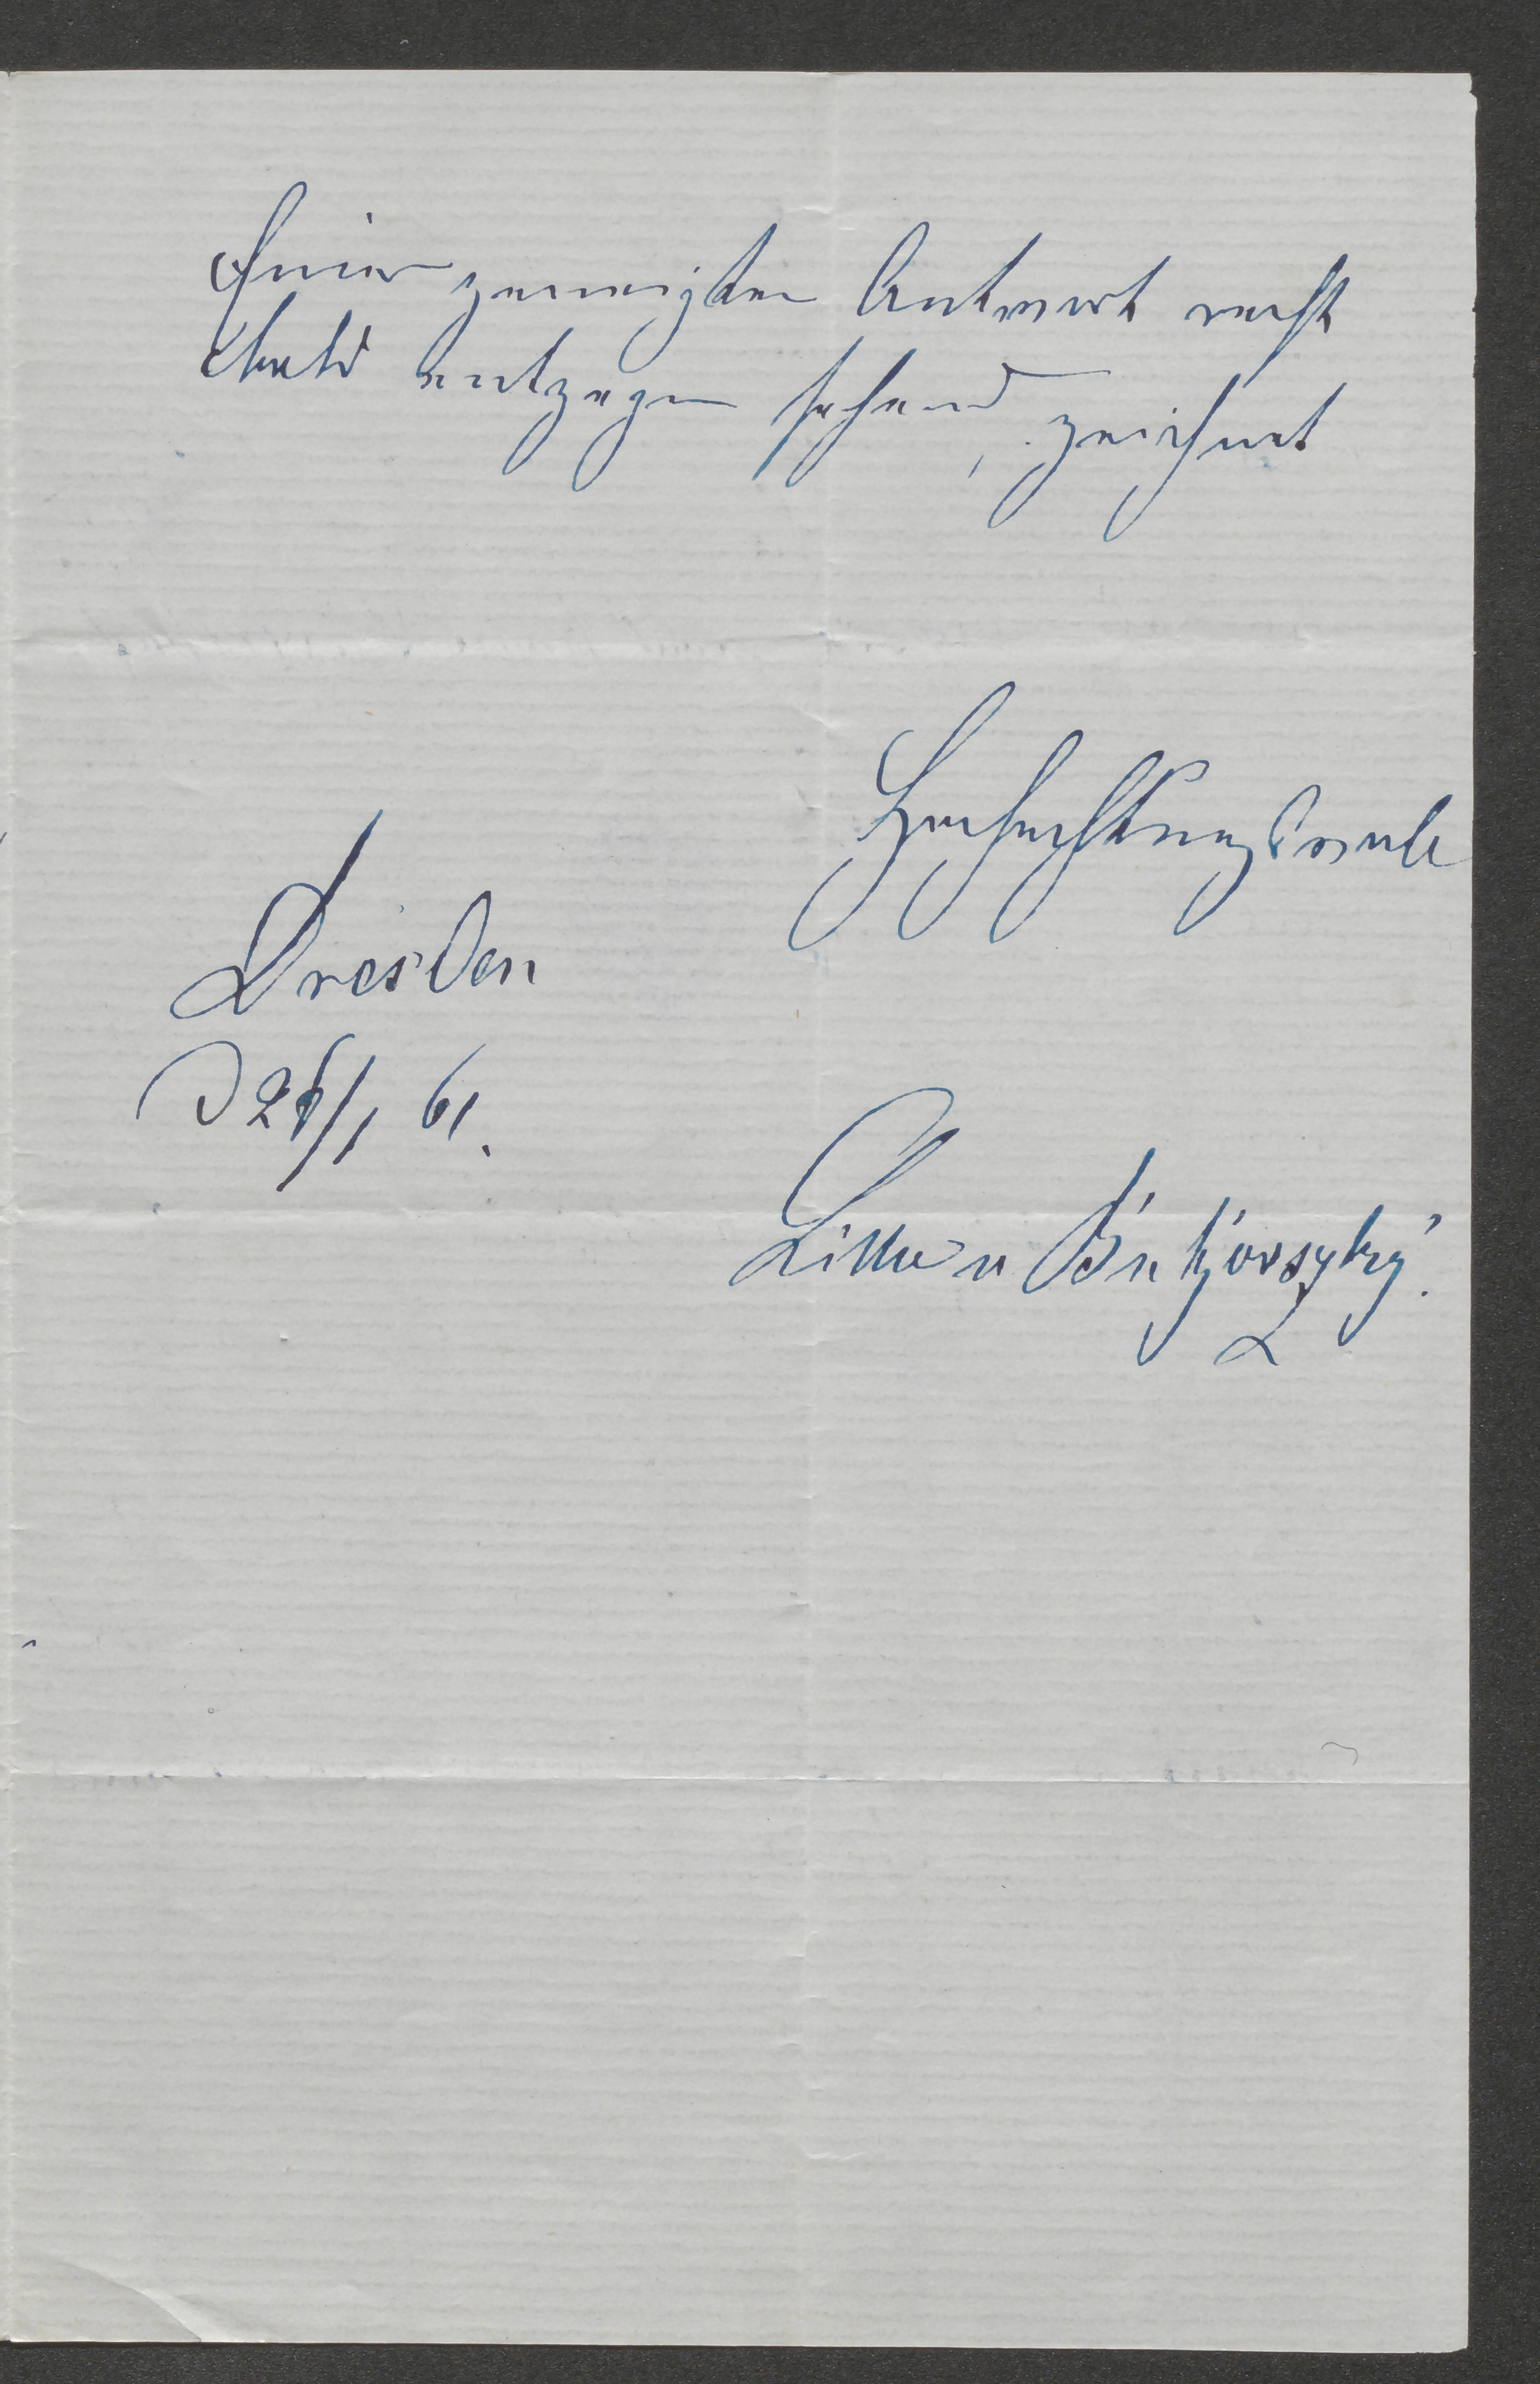 Einer geneigten Antwort recht
bald entgegen sehend, zeichnet
Hochachtungsvoll
Dresden
d 26/1 61.
Lilla v Bulyovszky.